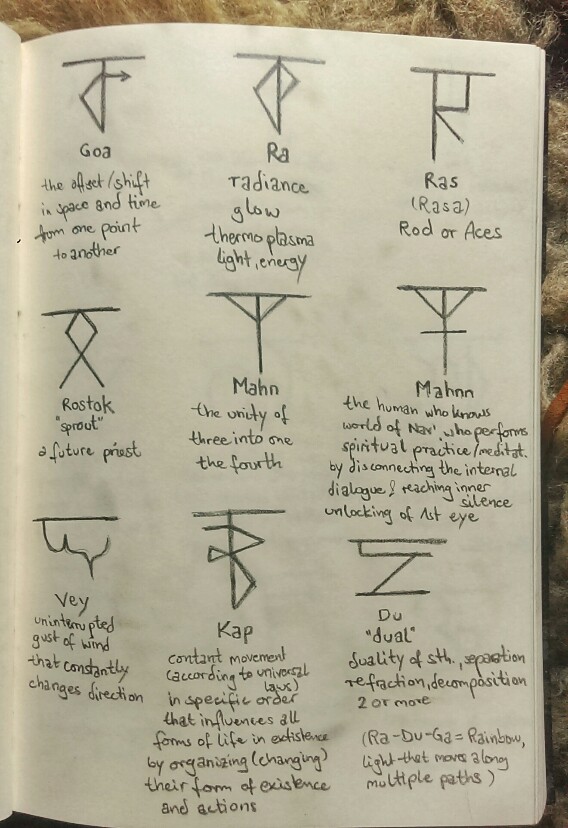 Goa
the offset/shift
in space and time
from one point
to another
Ra
radiance
glow
thermoplasma
light, energy
Ras
(Rasa)
Rod or Aces
Rostok
"sprout"
a future priest
Mahn
the unity of
three into one
the fourth
Mahnn
the human who knows
world of Nav', who performs
spiritual practice/meditat.
by disconnecting the internal
dialogue & reaching inner
silence
unlocking of 1st eye
Vey
uninterrupted
gust of wind
that constantly
changes direction
Kap
contant movement
(according to universal
laws)
in specific order
that influences all
forms of life in existence
by organizing (changing)
their form of existence
and actions
Du
"dual"
duality of sth., separation
refraction, decomposition
2 or more
(Ra-Du-Ga = Rainbow,
light that moves along
multiple paths)